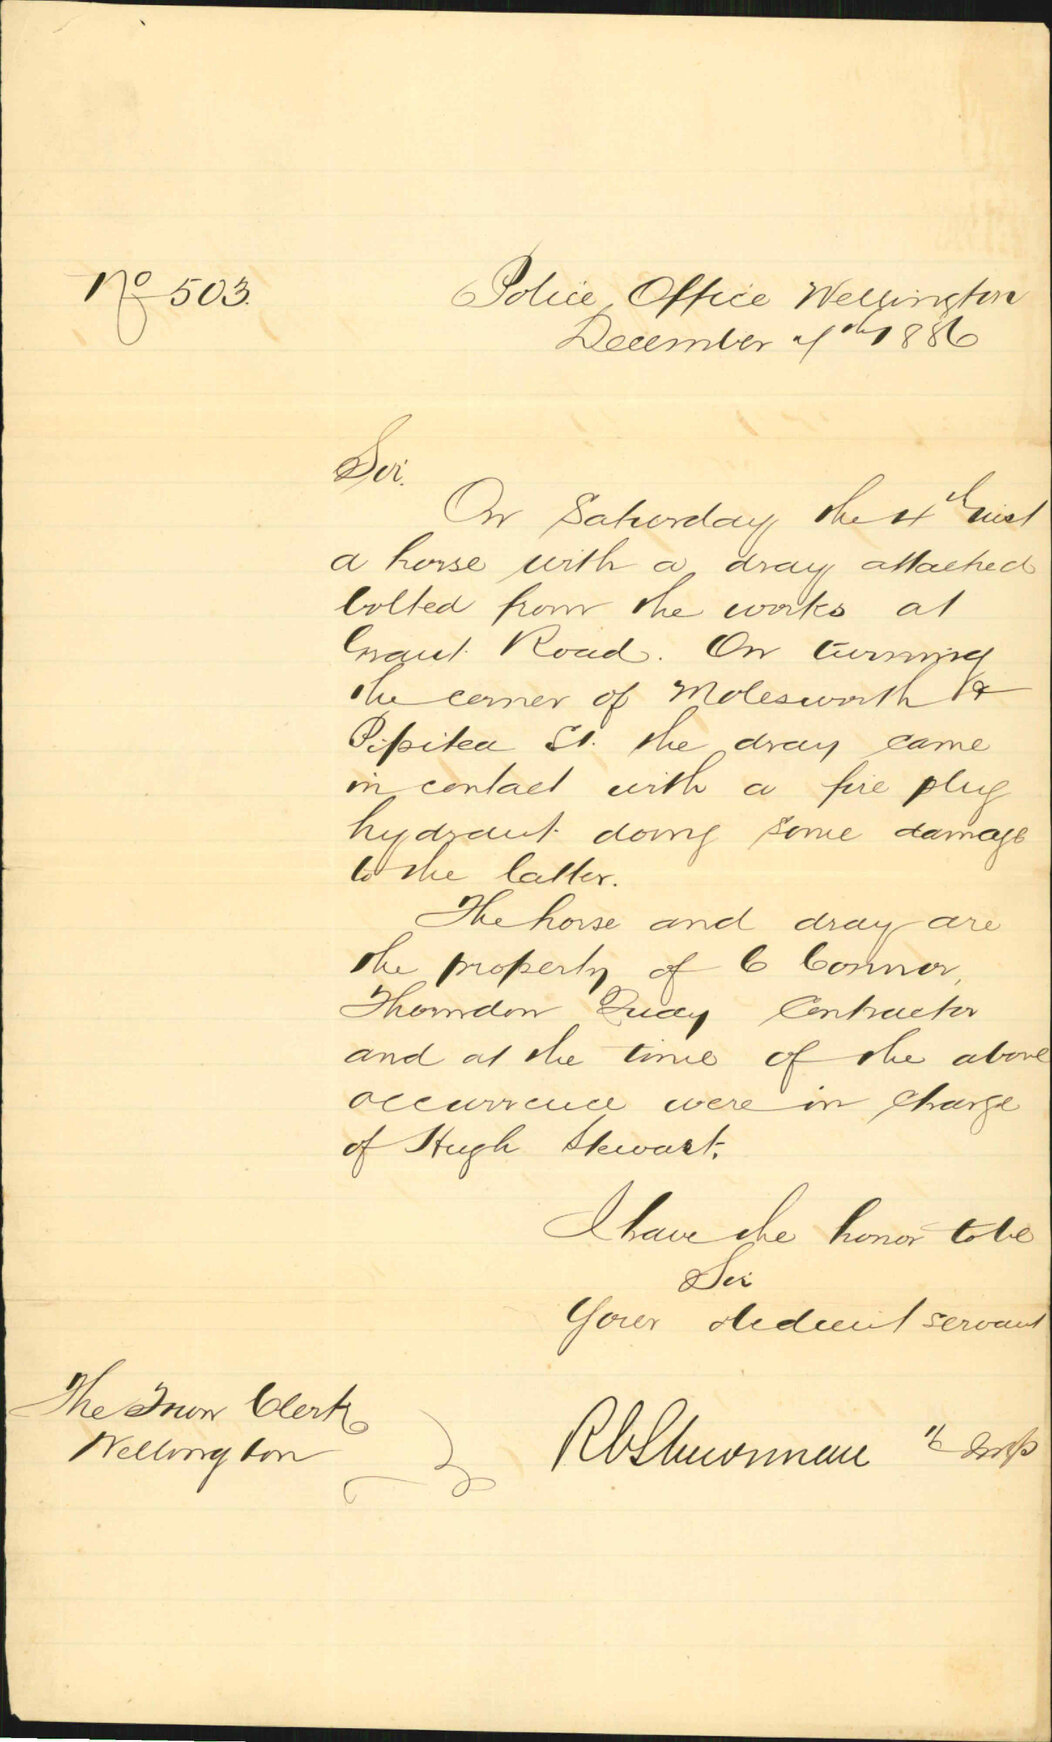 No 503.
Police Office Wellington
December 7th 1886
Sir.
On Saturday the 4th inst
a horse with a dray attached
bolted from the works at
Grant Road. On turning
the corner of Molesworth &
Pipitea St. the dray came
in contact with a fire plug
hydrant doing some damage
to the latter.
The horse and dray are
the property of C Connor,
Thorndon Quay Contractor
and at the time of the above
occurrence were in charge
of Hugh Stewart.
I have the honor to be
Sir
Your obedient servant
The Town Clerk
Wellington
Insp